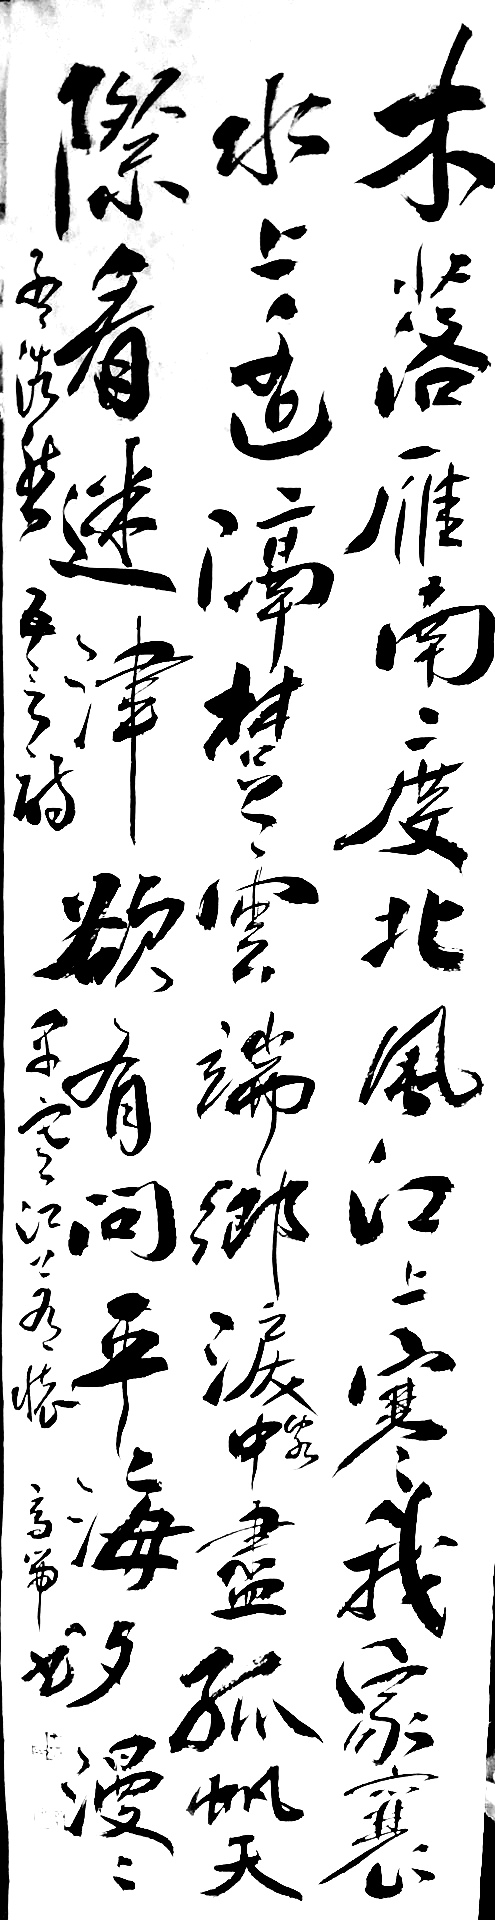 木落雁南度北風江上寒我家襄
水上遥隔楚雲端鄉淚客中盡孤帆天
際看迷津欲有問平海夕漫々
孟浩然 五言詩 早寒江上有懷 書